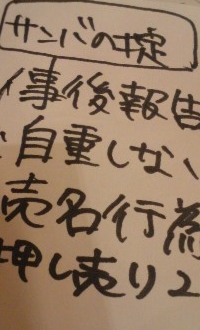 サンバの掟
事後報告
自重しない
売名行為
押し売り